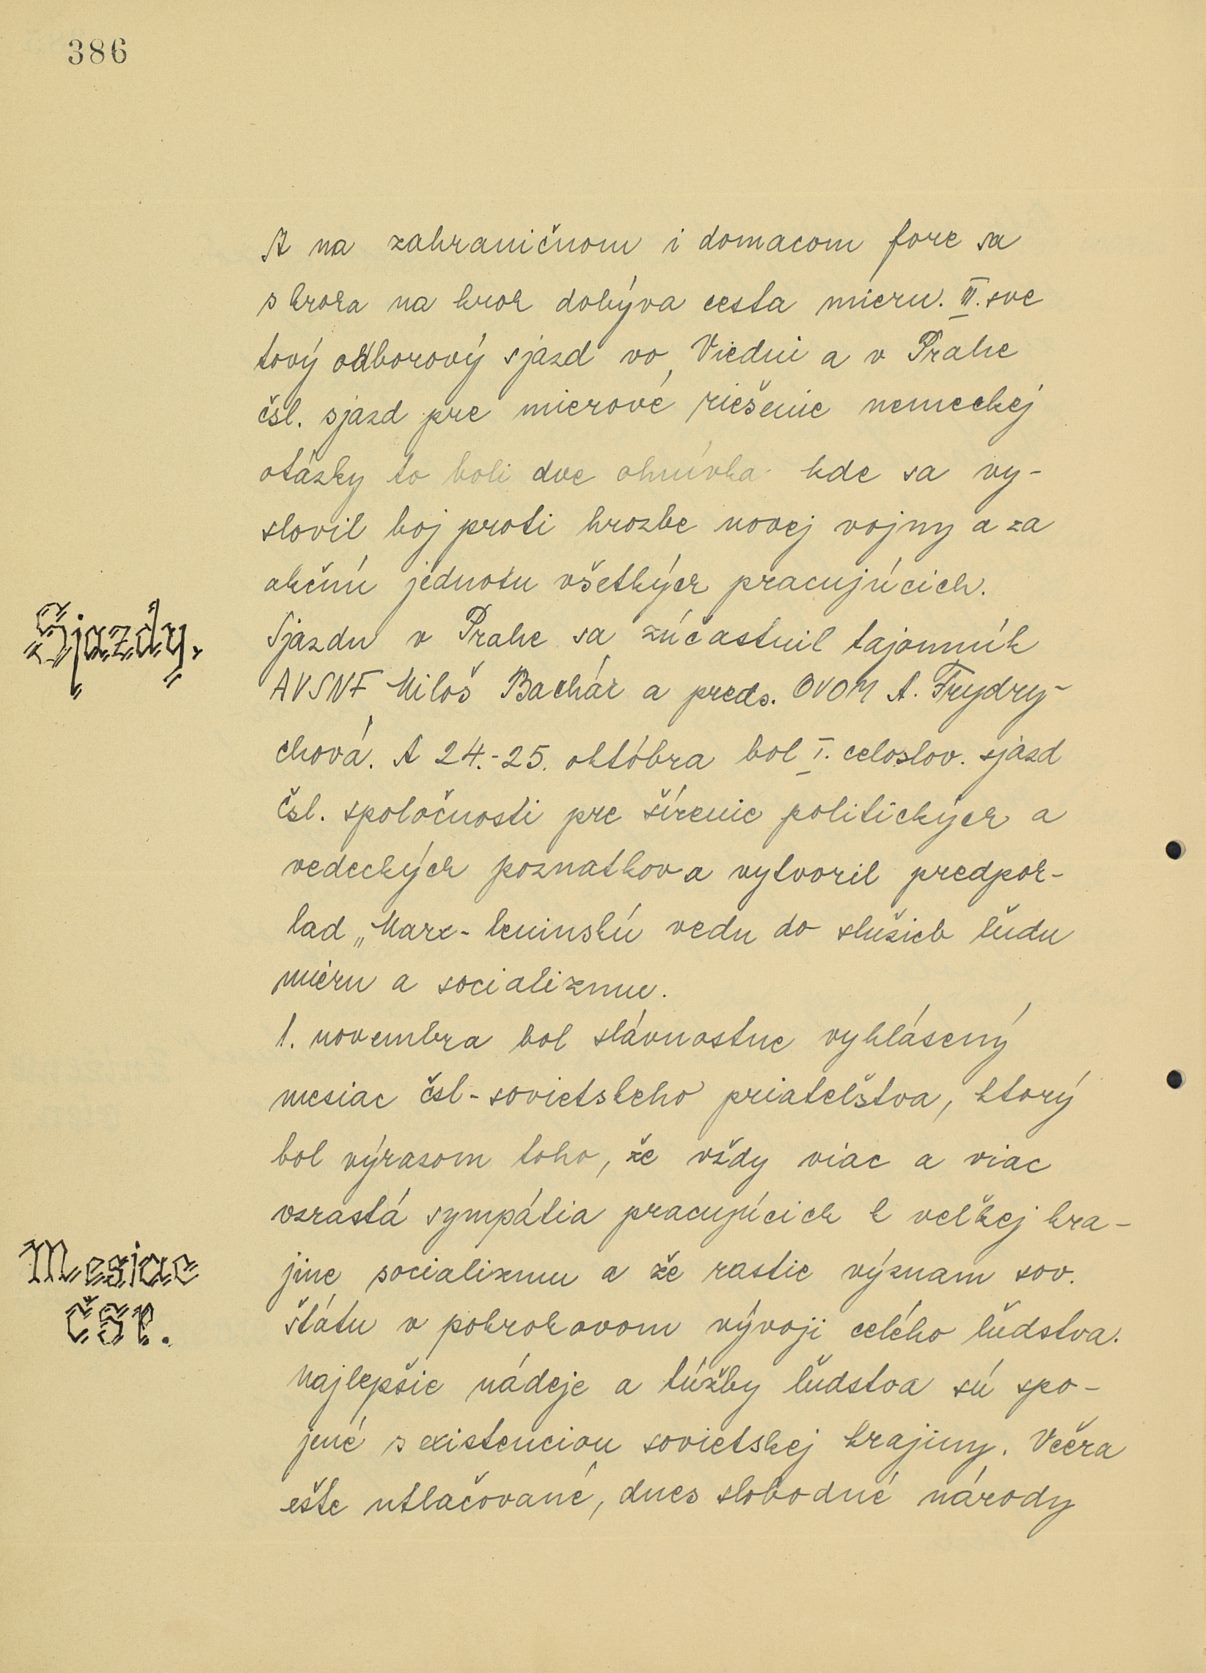 386
A na zahraničnom i domacom fore sa
s kroka na krok dobýva cesta mieru. III. sve
tový odborový sjazd vo Viedni a v Prahe
čsl. sjazd pre mierové riešenie nemeckej
otázky to boli dve ohnívka kde sa vy-
slovil boj proti hrozbe novej vojny a za
akčnú jednotu všetkých pracujúcich.
Sjazdy.
Sjazdu v Prahe sa zúčastnil tajomník
AVSNF Miloš Bachár a preds. OVOM A. Frydry-
chová. A 24.-25. októbra bol I. celoslov. sjazd
čsl. spoločnosti pre šírenie politických a
vedeckých poznatkov a vytvoril predpok-
lad „Marx-leninskú vedu do služieb ľudu
mieru a socializmu.
1. novembra bol slávnostne vyhlásený
mesiac čsl-sovietskeho priateľstva, ktorý
bol výrazom toho, že vždy viac a viac
vzrastá sympátia pracujúcich k veľkej kra-
Mesiac
jine socializmu a že rastie význam sov.
ČSP.
štátu v pokrokovom vývoji celého ľudstva.
Najlepšie nádeje a túžby ľudstva sú spo-
jené s existenciou sovietskej krajiny. Včera
ešte utlačované, dnes slobodné národy